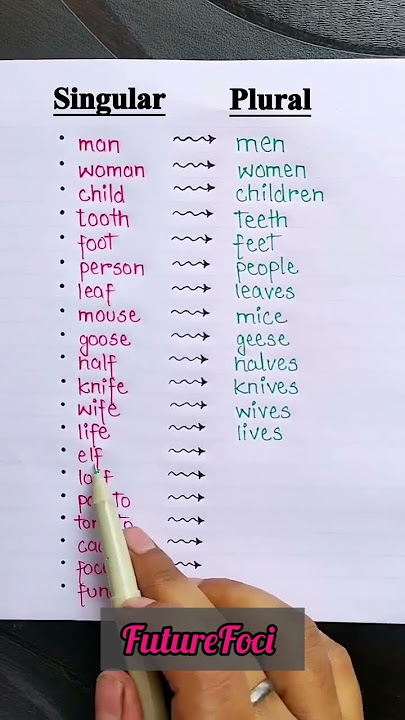 Singular Plural
man men
woman women
child children
tooth Teeth
foot feet
person people
leaf leaves
mouse mice
goose geese
half halves
knife knives
wife wives
life lives
elf
FutureFoci